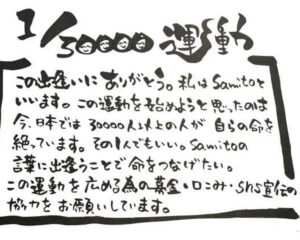 1/30000 運動
この出逢いにありがとう。私はSamitoと
いいます。この運動を始めようと思ったのは
今、日本では30000人以上の人が自らの命を
絶っています。その1人でもいい。Samitoの
言葉に出逢うことで命をつなげたい。
この運動を広める為の募金・口こみ・SNS宣伝の
協力をお願いしています。